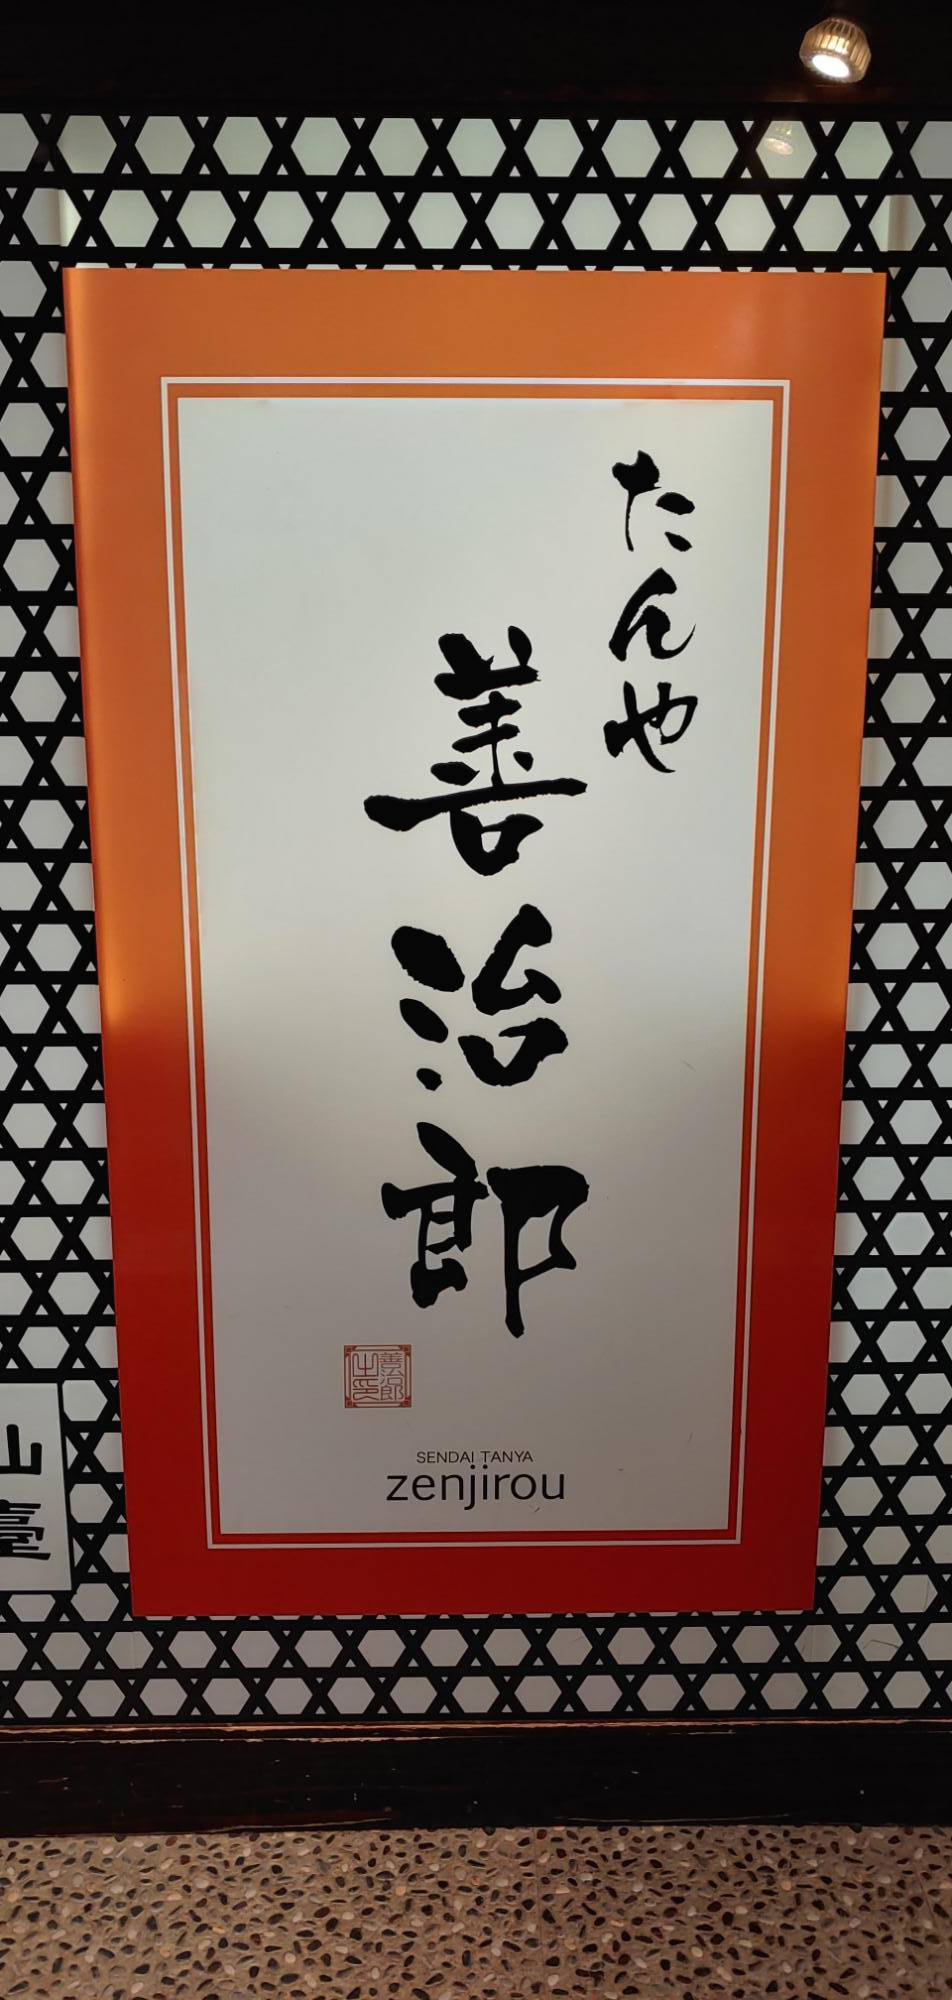 たんや
善治郎
善治郎
之印
SENDAI TANYA
zenjirou
山
臺